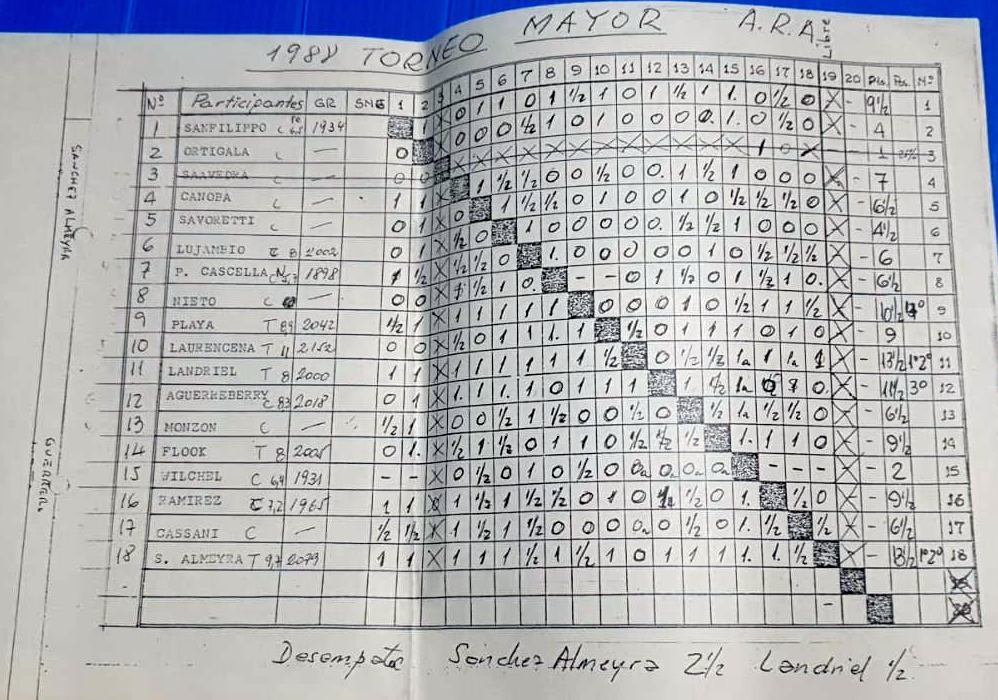 1988 TORNEO MAYOR A.R.A. Libre
Nº Participantes GR SNG 1 2 3 4 5 6 7 8 9 10 11 12 13 14 15 16 17 18 19 20 Pts. Pos. Nº
1 SANFILIPPO C 1934 1 X 0 1 1 0 1 1/2 1 0 1 1/2 1 1. 0 1/2 0 X - 9 1/2 1
2 ORTIGALA C — 0 X 0 0 0 1/2 1 0 1 0 0 0 0. 1. 0 1/2 0 X - 4 2
3 SAAVEDRA C — 0 0 X X X X X X X X X X X 1 0 X - 1 3
4 CANOBA C — 1 1 X 1 1/2 1/2 0 0 1/2 0 0. 1 1/2 1 0 0 0 X - 7 4
5 SAVORETTI C — 0 1 X 0 1 1/2 1/2 0 1 0 0 1 0 1/2 1/2 1/2 0 X - 6 1/2 5
6 LUJAMBIO C 8 2002 0 1 X 1/2 0 1 0 0 0 0 0. 1/2 1/2 1 0 0 0 X - 4 1/2 6
7 P. CASCELLA 1898 1 1/2 X 1/2 1/2 0 1. 0 0 0 0 0 1 0 1/2 1/2 1/2 X - 6 7
8 NIETO C — 0 0 X 1/2 1 0. - - 0 1 1/2 0 1 1/2 1 0. X - 6 1/2 8
9 PLAYA T 8,9 2042 1/2 1 X 1 1 1 1 1 0 0 0 1 0 1/2 1 1 1/2 X - 10 1/2 4º 9
10 LAURENCENA T 11 2152 0 0 X 1/2 0 1 1 1. 1 1/2 0 1 1 1 0 1 0 X - 9 10
11 LANDRIEL T 8 2000 1 1 X 1 1 1 1 1 1 1/2 0 1/2 1/2 1a 1 1a 1 X - 13 1/2 1º2º 11
12 AGUERREBERRY C 83 2018 0 1 X 1. 1. 1. 1 0 1 1 1 1 1/2 1a 0 0. X - 11 1/2 3º 12
13 MONZON C — 1/2 1 X 0 0 1/2 1 1/2 0 0 1/2 0 1/2 1a 1/2 1/2 0 X - 6 1/2 13
14 FLOOK T 8 2005 0 1. X 1/2 1 1/2 0 1 1 0 1/2 1/2 1/2 1. 1 1 0 X - 9 1/2 14
15 WILCHEL C 6,4 1931 - - X 0 1/2 0 1 0 1/2 0 0a 0 0a 0a - - - X - 2 15
16 RAMIREZ C 7,2 1965 1 1 X 1 1/2 1 1/2 1/2 0 1 0 1/2 0 1. 1/2 0 X - 9 1/2 16
17 CASSANI C — 1/2 1/2 X 1 1/2 1 1/2 0 0 0 0a 0 1/2 0 1. 1/2 1/2 X - 6 1/2 17
18 S. ALMEYRA T 9,7 2079 1 1 X 1 1 1 1/2 1 1/2 1 0 1 1 1 1. 1. 1/2 X - 13 1/2 1º2º 18
Desempate Sánchez Almeyra 2 1/2 Landriel 1/2
SANCHEZ ALMEYRA